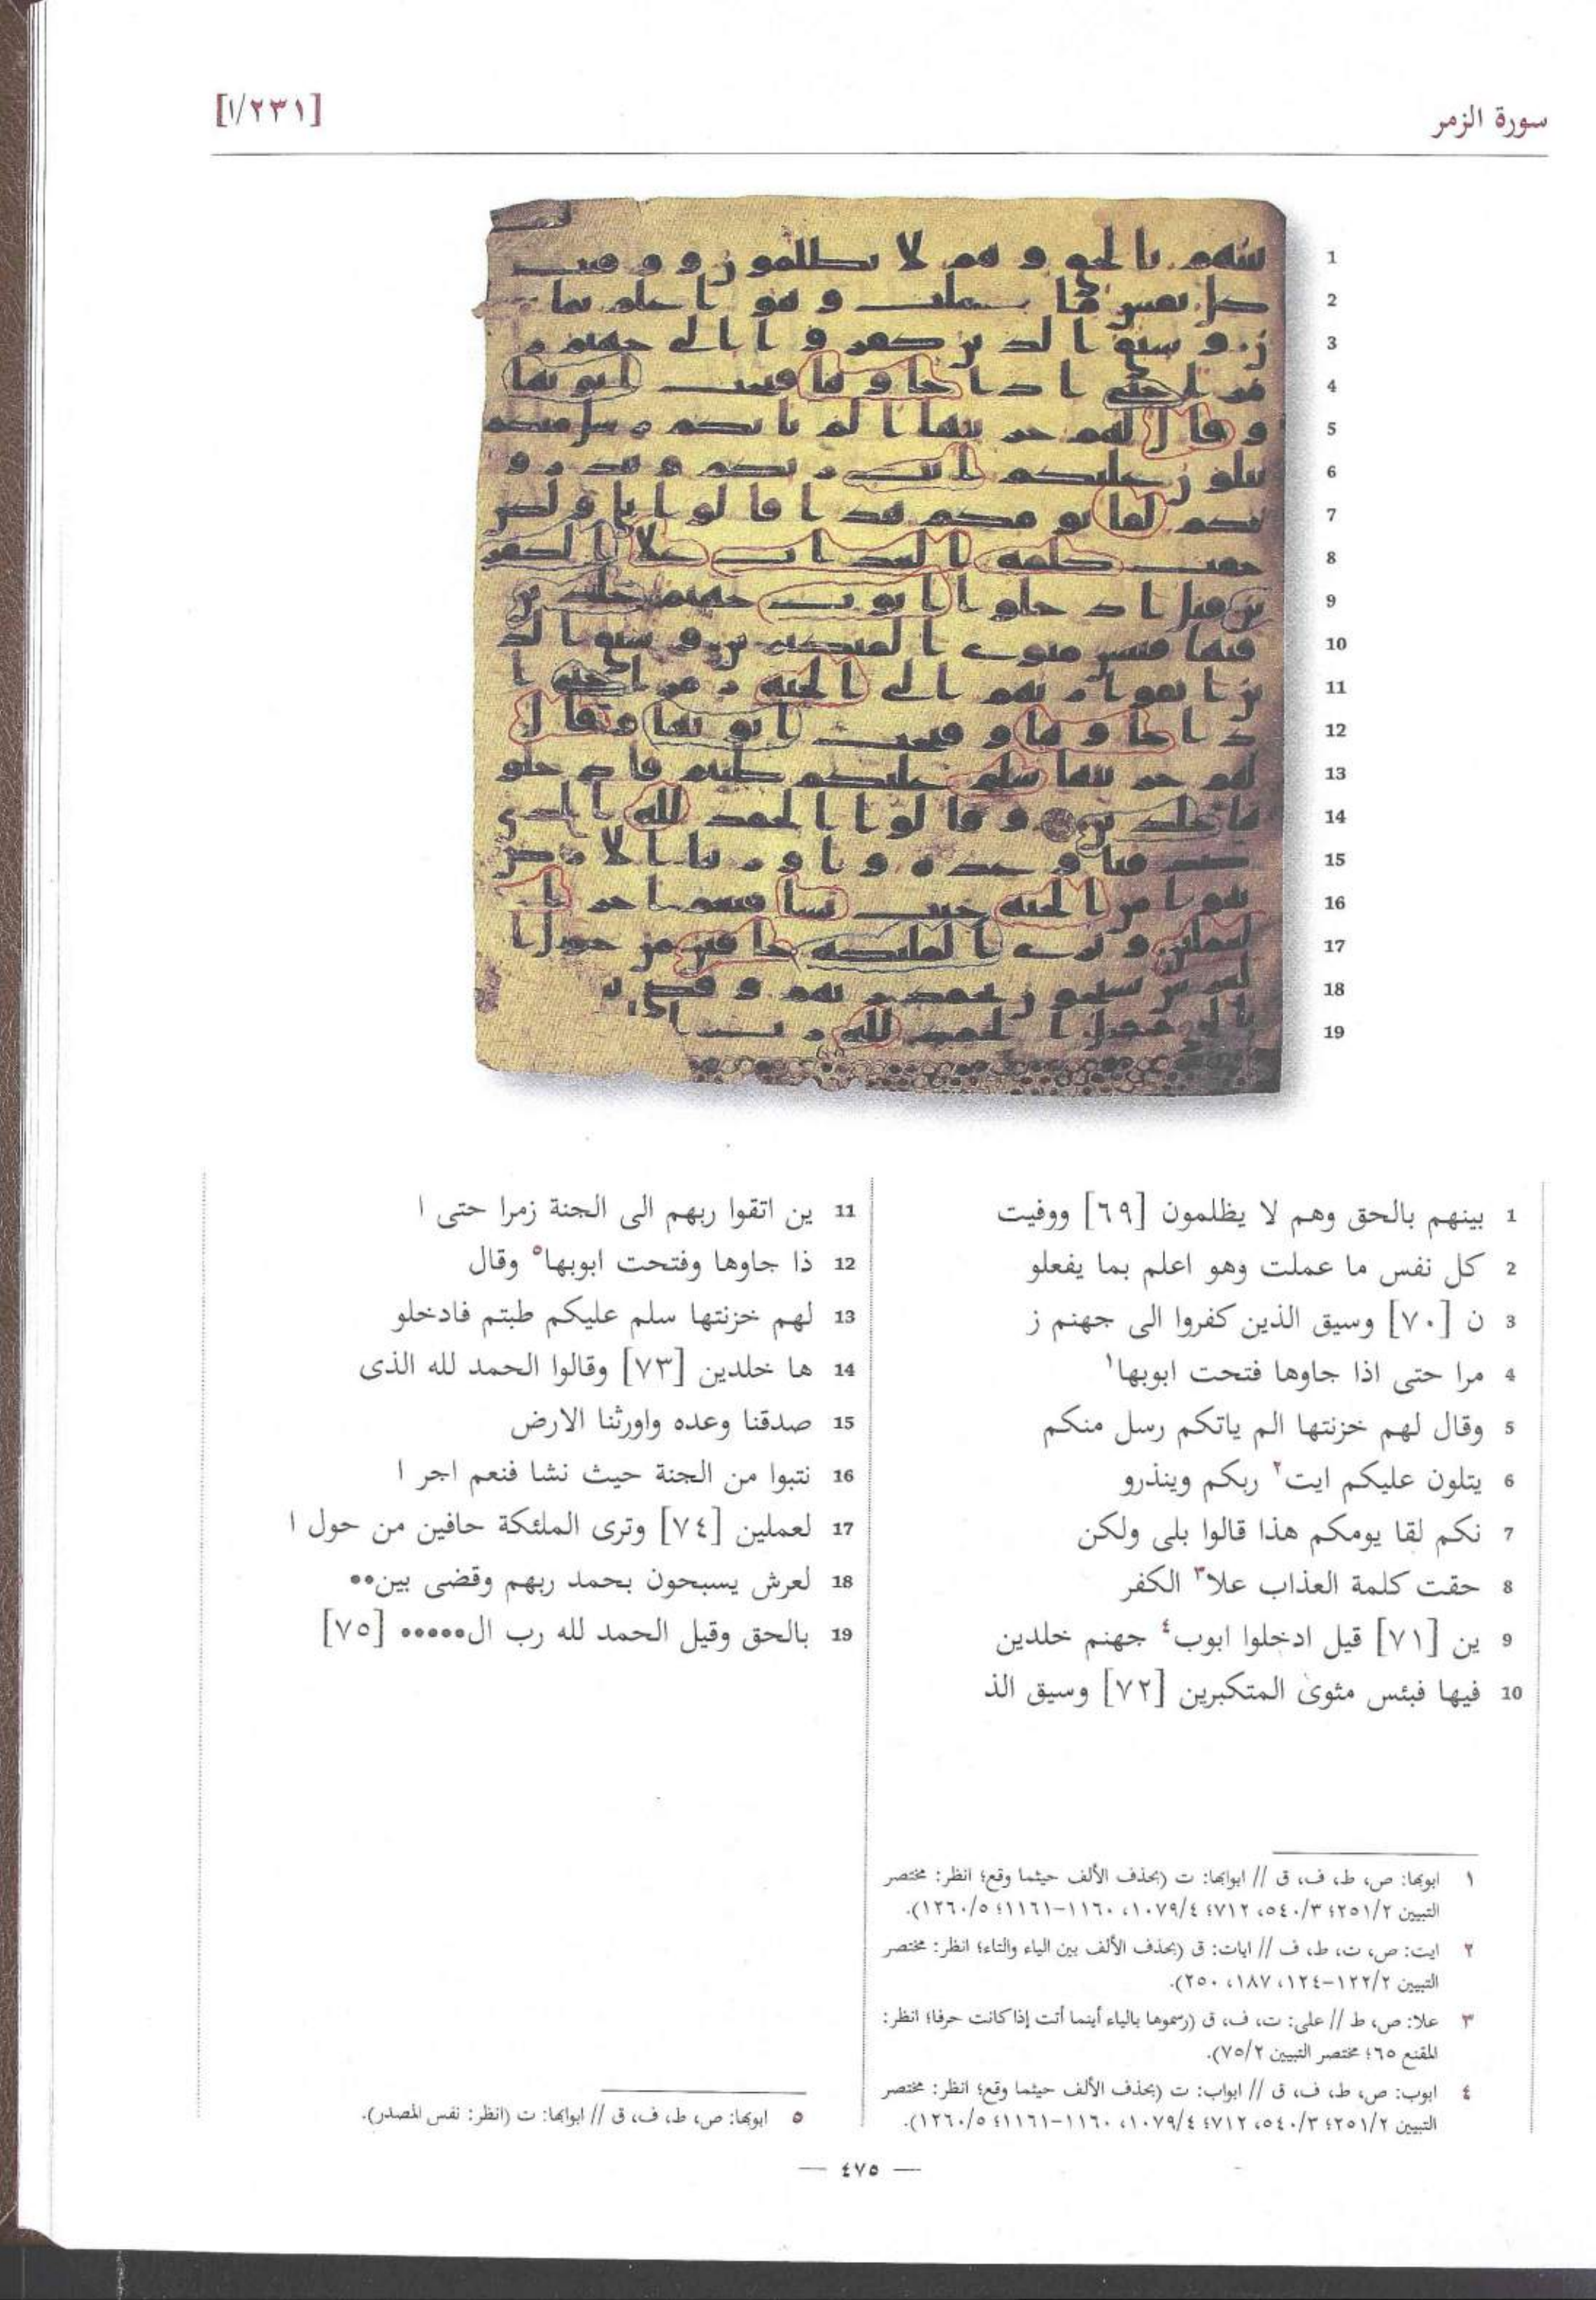 سورة الزمر
[١/٢٣١]
1 بينهم بالحق وهم لا يظلمون [٦٩] ووفيت
2 كل نفس ما عملت وهو اعلم بما يفعلو
3 ن [٧٠] وسيق الذين كفروا الى جهنم ز
4 مرا حتى اذا جاوها فتحت ابوبها١
5 وقال لهم خزنتها الم ياتكم رسل منكم
6 يتلون عليكم ايت٢ ربكم وينذرو
7 نكم لقا يومكم هذا قالوا بلى ولكن
8 حقت كلمة العذاب علا٣ الكفر
9 ين [٧١] قيل ادخلوا ابوب٤ جهنم خلدين
10 فيها فبئس مثوى المتكبرين [٧٢] وسيق الذ
11 ين اتقوا ربهم الى الجنة زمرا حتى ا
12 ذا جاوها وفتحت ابوبها٥ وقال
13 لهم خزنتها سلم عليكم طبتم فادخلو
14 ها خلدين [٧٣] وقالوا الحمد لله الذى
15 صدقنا وعده واورثنا الارض
16 نتبوا من الجنة حيث نشا فنعم اجر ا
17 لعملين [٧٤] وترى الملئكة حافين من حول ا
18 لعرش يسبحون بحمد ربهم وقضى بين••
19 بالحق وقيل الحمد لله رب ال••••• [٧٥]
١ ابوبها: ص، ط، ف، ق // ابوابها: ت (بحذف الألف حيثما وقع؛ انظر: مختصر
التبيين ٢٥١/٢؛ ٥٤٠/٣، ٧١٢؛ ١٠٧٩/٤، ١١٦٠-١١٦١؛ ١٢٦٠/٥).
٢ ايت: ص، ت، ط، ف // ايات: ق (بحذف الألف بين الياء والتاء؛ انظر: مختصر
التبيين ١٢٢/٢-١٢٤، ١٨٧، ٢٥٠).
٣ علا: ص، ط // على: ت، ف، ق (رسموها بالياء أينما أتت إذا كانت حرفا؛ انظر:
المقنع ٦٥؛ مختصر التبيين ٧٥/٢).
٤ ابوب: ص، ط، ف، ق // ابواب: ت (بحذف الألف حيثما وقع؛ انظر: مختصر
التبيين ٢٥١/٢؛ ٥٤٠/٣، ٧١٢؛ ١٠٧٩/٤، ١١٦٠-١١٦١؛ ١٢٦٠/٥).
٥ ابوبها: ص، ط، ف، ق // ابوابها: ت (انظر: نفس المصدر).
— ٤٧٥ —